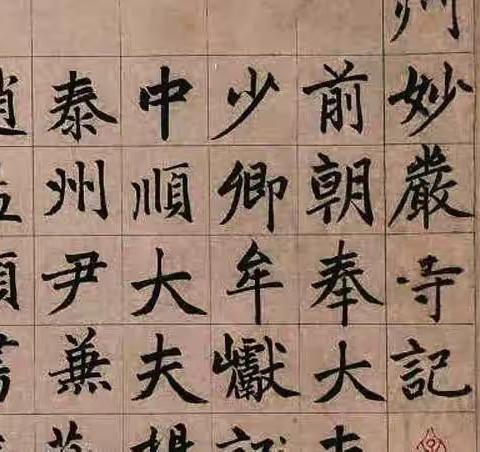 州妙嚴寺記
前朝奉大
少卿牟巘
中順大夫
泰州尹兼